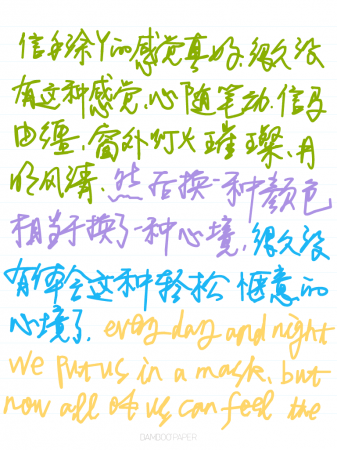 信手涂丫的感觉真好、很久没
有这种感觉、心随笔动、信马
由缰、窗外灯火璀璨、月
明风清、然后换一种颜色
相当于换了一种心境、很久没
有体会这种轻松惬意的
心境了、every day and night
we put us in a mask, but
now all of us can feel the